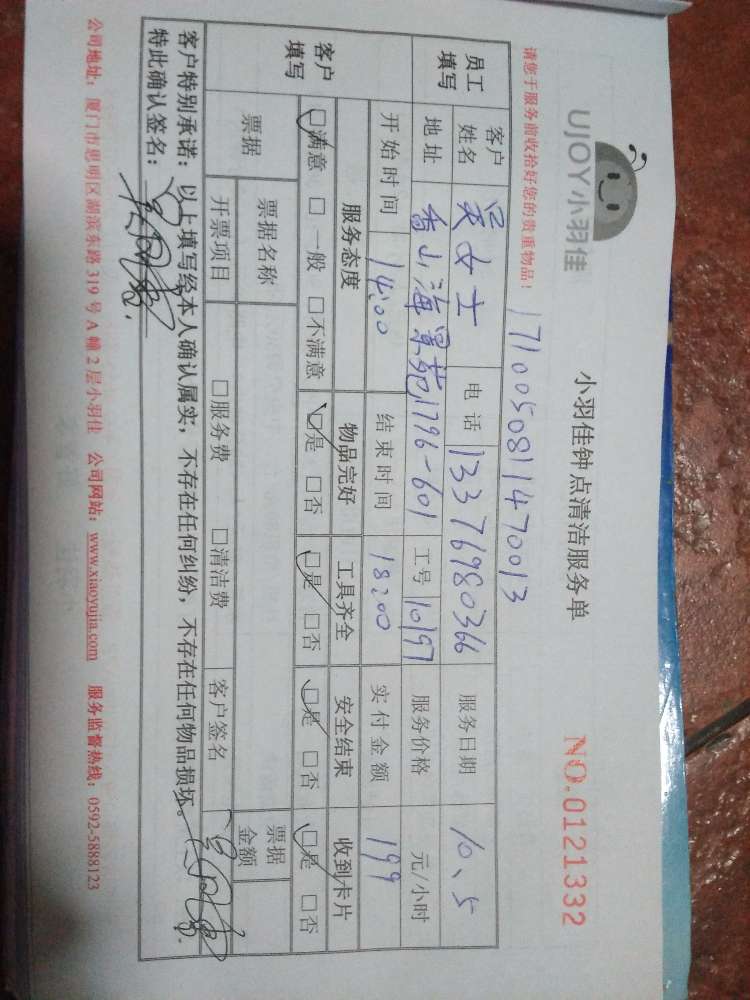 UJOY小羽佳
小羽佳钟点清洁服务单
NO.0121332
请您于服务前收拾好您的贵重物品！
171005081470013
员工填写
客户姓名 吴女士 电话 13376980366 服务日期 10、5
地址 香山海景苑1796-601 工号 10197 服务价格 元/小时
开始时间 14:00 结束时间 18:00 实付金额 199
客户填写
服务态度 物品完好 工具齐全 安全结束 收到卡片
☑满意 □一般 □不满意 ☑是 □否 ☑是 □否 ☑是 □否 ☑是 □否
票据
票据名称 票据金额
开票项目 □服务费 □清洁费 客户签名
客户特别承诺：以上填写经本人确认属实，不存在任何纠纷，不存在任何物品损坏。
特此确认签名：
公司地址：厦门市思明区湖滨东路319号A幢2层小羽佳 公司网站：www.xiaoyujia.com 服务监督热线：0592-5888123